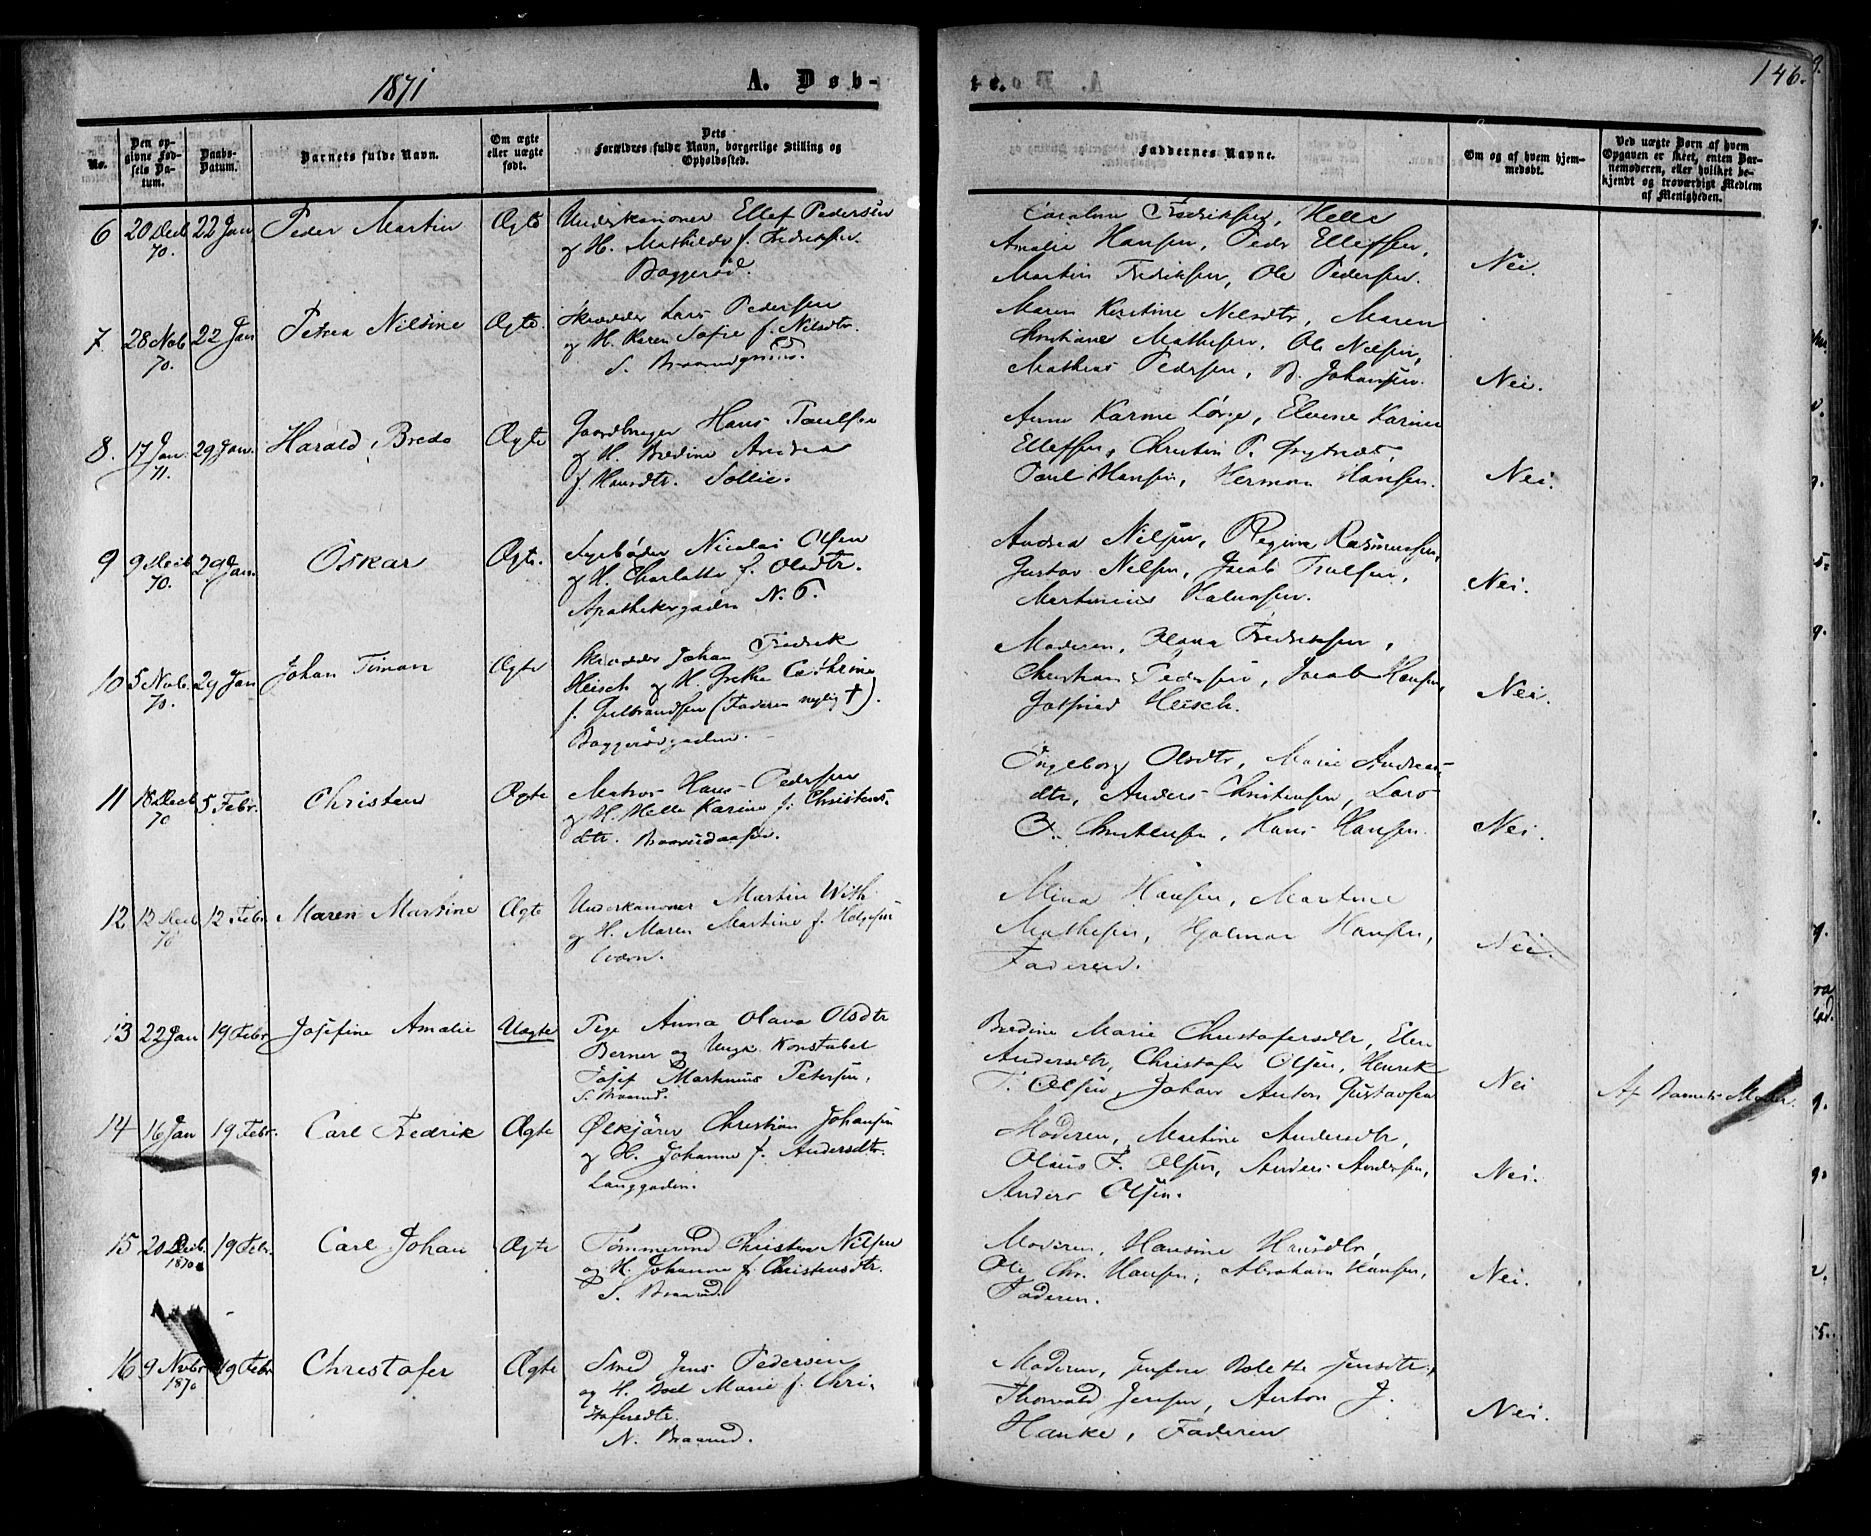 1871
A. Døb-
te.
146.
No.
Den op-
givne Fød-
sels Da-
tum.
Daabs-
Datum.
Barnets fulde Navn.
Om ægte
eller uægte
født.
Dets
Forældres fulde Navn, borgerlige Stilling og
Opholdssted.
Faddernes Navne.
Om og af hvem hjem-
medøbt.
Ved uægte Børn af hvem
Opgaven er skeet, enten Bar-
nemoderen, eller hvilket be-
kjendt og troværdigt Medlem
af Menigheden.
6 20 Decb 70. 22 Jan Peder Martin Ægte
Underkanoner Ellef Pedersen
og H. Mathilde f. Fredriksen.
Baggerød.
Caroline Fredriksen, Helle
Amalie Hansen, Peder Ellefsen,
Martin Fredriksen, Ole Pedersen.
Nei.
7. 28 Novb 70. 22 Jan Petrea Nilsine Ægte.
Skrædder Lars Pedersen
og H. Karen Sofie f. Nilsdtr.
S. Braarud
Maren Kirstine Nilsdtr, Maren
Christiane Mathesen, Ole Nilsen,
Mathias Pedersen, B. Johansen.
Nei.
8. 17 Jan. 71. 29 Jan. Harald Bredo Ægte
Gaardbruger Hans Paulsen
og H. Bredine Andrea
f. Hansdtr. Sollie.
Anne Karine Lørge, Elvine Karine
Ellefsen, Christin P.
Paul Hansen, Herman Hansen.
Nei.
9 9 Decb 70. 29 Jan. Oskar Ægte.
Fyrbøder Nicolai Olsen
og H. Charlotte f. Olsdtr.
Apothekergaden N. 6.
Andrea Nilsen, Regine Rasmussen,
Gustav Nilsen, Jacob Truelsen,
Martinius Halvorsen.
Nei.
10 5 Novb. 70. 29 Jan Johan Timan Ægte
Skrædder Johan Fredrik
Heisch og H. Grethe Cathrine
f. Gulbrandsen (Faderen nylig †).
Baggerødgaden.
Moderen, Olava Fredriksen,
Christian Pedersen, Jacob Hansen,
Gotfried Heisch.
Nei.
11 18 Decb 70 5 Febr. Christen Ægte
Matros Hans Pedersen
og H. Helle Karine f. Christens-
dtr. Braarudaasen.
Ingeborg Olsdtr, Marie Andreas-
dtr, Anders Christensen, Lars
Christensen, Hans Hansen.
Nei.
12 13 Decb 70 12 Febr Maren Martine Ægte
Underkanoner Martin With
og H. Maren Martine f. Helgesen
Mina Hansen, Martine
Mathesen, Hjalmar Hansen,
Faderen.
Nei.
13 22 Jan 19 Febr Josefine Amalie Uægte
Pige Anna Olava Olsdtr
Berner og Ungk. Konstabel
Josef Martinius Petersen,
S. Braarud.
Bredine Marie Christofersdtr, Elen
Andersdtr, Christofer Olsen, Henrik
T. Olsen, Johan Anton Gustavsen
Nei
Af Barnets Moder.
14 16 Jan 19 Febr. Carl Fredrik Ægte
Ølkjører Christian Johansen
og H. Johanne f. Andersdtr.
Langgaden.
Moderen, Martine Andersdtr,
Olaus F. Olsen, Anders Andersen,
Anders Olsen.
Nei.
15 20 Decb. 1870. 19 Febr. Carl Johan Ægte
Tømmermand Christen Nilsen
og H. Johanne f. Christensdtr.
S. Braarud.
Moderen, Hansine Hansdtr,
Ole Chr. Hansen, Abraham Hansen,
Faderen.
Nei.
16 9 Novbr 1870 19 Febr Christofer Ægte
Smed Jens Pedersen
og H. Boel Marie f. Chri-
stofersdtr.
N. Braarud.
Moderen, Josefine Bolette Jensdtr.,
Thorvald Jensen, Anton J.
Hanke, Faderen
Nei.